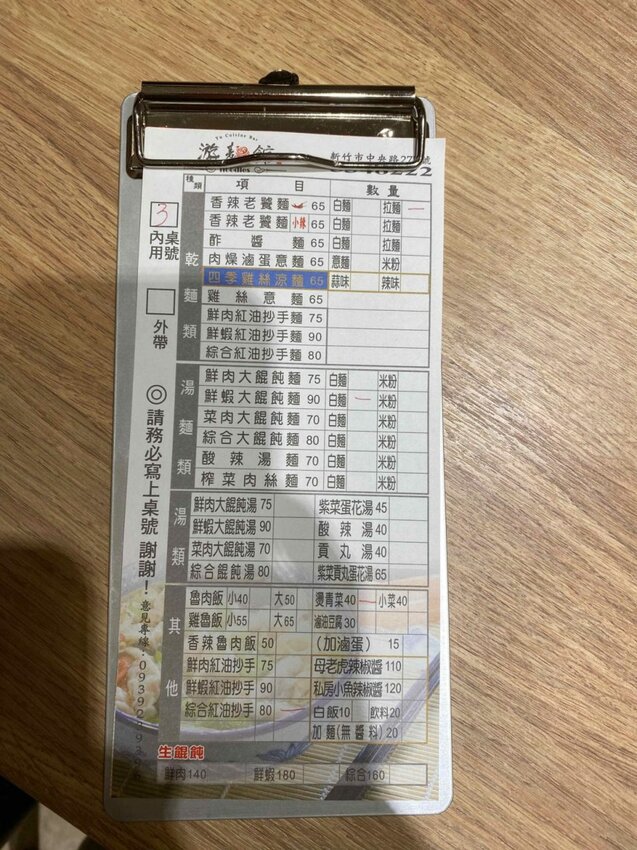 Yu Cuisine Bar
noodles
新竹市中央路27 號
222
種類 項目 數量
3
桌號
內用
外帶
◎請務必寫上桌號 謝謝!
意見專線:09392
乾麵類
香辣老饕麵 65 白麵 拉麵 一
香辣老饕麵 小辣 65 白麵 拉麵
酢醬麵 65 白麵 拉麵
肉燥滷蛋意麵 65 意麵 米粉
四季雞絲涼麵 65 蒜味 辣味
雞絲意麵 65
鮮肉紅油抄手麵 75
鮮蝦紅油抄手麵 90
綜合紅油抄手麵 80
湯麵類
鮮肉大餛飩麵 75 白麵 米粉
鮮蝦大餛飩麵 90 白麵 一 米粉
菜肉大餛飩麵 70 白麵 米粉
綜合大餛飩麵 80 白麵 米粉
酸辣湯麵 70 白麵 米粉
榨菜肉絲麵 70 白麵 米粉
湯類
鮮肉大餛飩湯 75 紫菜蛋花湯 45
鮮蝦大餛飩湯 90 酸辣湯 40
菜肉大餛飩湯 70 貢丸湯 40
綜合餛飩湯 80 紫菜貢丸蛋花湯 65
其他
魯肉飯 小40 大50 燙青菜40 一 小菜40
雞魯飯 小55 大65 滷油豆腐 30
香辣魯肉飯 50 (加滷蛋) 15
鮮肉紅油抄手 75 母老虎辣椒醬 110
鮮蝦紅油抄手 90 私房小魚辣椒醬 120
綜合紅油抄手 80 一 白飯10 飲料20
加麵(無醬料) 20
生餛飩
鮮肉140 鮮蝦180 綜合160